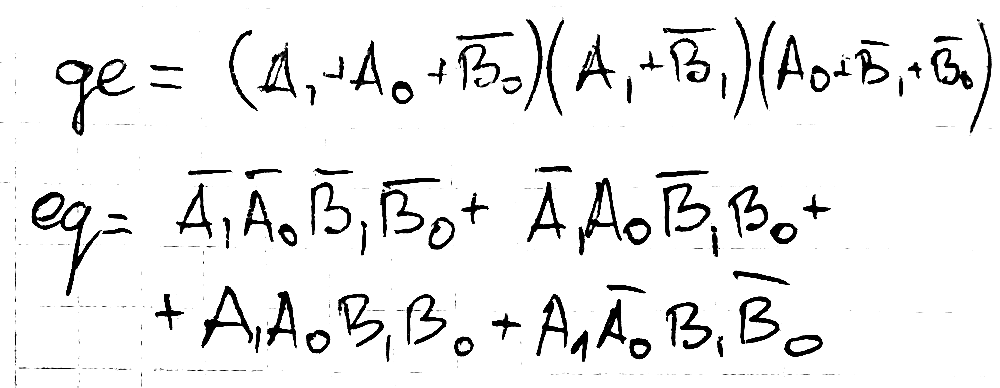 ge = (A₁+A₀+B̅₀)(A₁+B̅₁)(A₀+B̅₁+B̅₀)
eq= A̅₁A̅₀B̅₁B̅₀+ A̅₁A₀B̅₁B₀+
+ A₁A₀B₁B₀ + A₁A̅₀B₁B̅₀